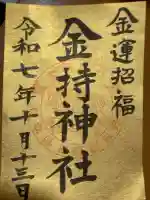 金運招福
金持神社
令和七年十月十三日